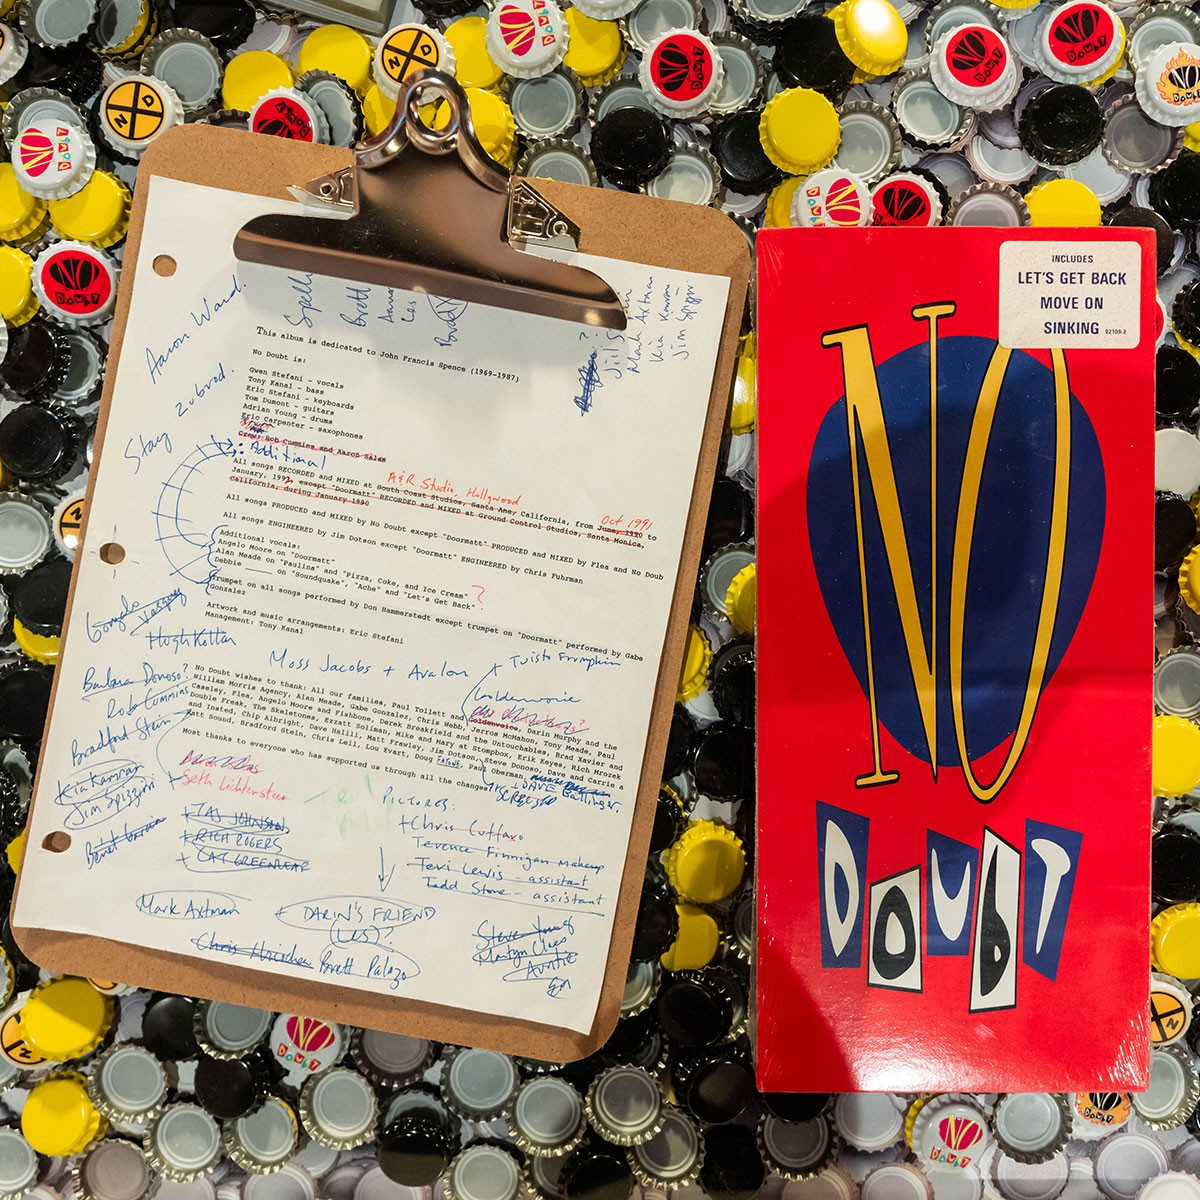 Aaron Ward.
Zubrod.
Stacy
Spell
Brett
Aaron
Les
Brad
Mark Axtman
Kia Kamran
Jim Spizziri
This album is dedicated to John Francis Spence (1969-1987)
No Doubt is:
Gwen Stefani - vocals
Tony Kanal - bass
Eric Stefani - keyboards
Tom Dumont - guitars
Adrian Young - drums
Eric Carpenter - saxophones
Crew: Rob Cummins and Aaron Salas
: Additional
A&R Studio, Hollywood
Oct 1991
All songs RECORDED and MIXED at South Coast Studios, Santa Ana, California, from June, 1990 to
January, 1992 except "Doormatt" RECORDED and MIXED at Ground Control Studios, Santa Monica,
California, during January 1990
All songs PRODUCED and MIXED by No Doubt except "Doormatt" PRODUCED and MIXED by Flea and No Doub
All songs ENGINEERED by Jim Dotson except "Doormatt" ENGINEERED by Chris Fuhrman
Additional vocals:
Angelo Moore on "Doormatt"
Alan Meade on "Paulina" and "Pizza, Coke, and Ice Cream"
Debbie ______ on "Soundquake", "Ache" and "Let's Get Back" ?
Trumpet on all songs performed by Don Hammerstedt except trumpet on "Doormatt" performed by Gabe
Gonzalez
Artwork and music arrangements: Eric Stefani
Management: Tony Kanal
Gonzalo Vasquez
Hugh Kollar
Moss Jacobs + Avalon
+ Twisto Frumpkin
Goldenvoice
Barbara Donoso?
Rob Cummins
Bradford Stein
Kia Kamran
Jim Spizzirri
Benet Garcia
No Doubt wishes to thank: All our families, Paul Tollett and Goldenvoice, Darin Murphy and the
William Morris Agency, Alan Meade, Gabe Gonzalez, Chris Webb, Jerros McMahon, Tony Meade, Paul
Caseley, Flea, Angelo Moore and Fishbone, Derek Breakfield and the Untouchables, Brad Xavier and
Double Freak, The Skeletones, Ezzatt Soliman, Mike and Mary at Stompbox, Erik Keyes, Rich Mrozek
and Insted, Chip Albright, Dave Halili, Matt Frawley, Jim Dotson, Steve Donoso, Dave and Carrie a
Matt Sound, Bradford Stein, Chris Leil, Lou Evart, Doug Fatone, Paul Oberman,
Most thanks to everyone who has supported us through all the changes!
+ DAVE Gallinger.
Seth Lichtenstein
+ TAJ JOHNSON
+ RICH ROGERS
+ CAT GREENLEAF
PICTURES:
+ Chris Cuffaro
Terence Finnigan makeup
Jeri Lewis - assistant
Todd Stone - assistant
Mark Axtman
+ DARIN'S FRIEND
(LES)?
Brett Palazo
Auntie
INCLUDES
LET'S GET BACK
MOVE ON
SINKING 92109-2
NO
DOUBT